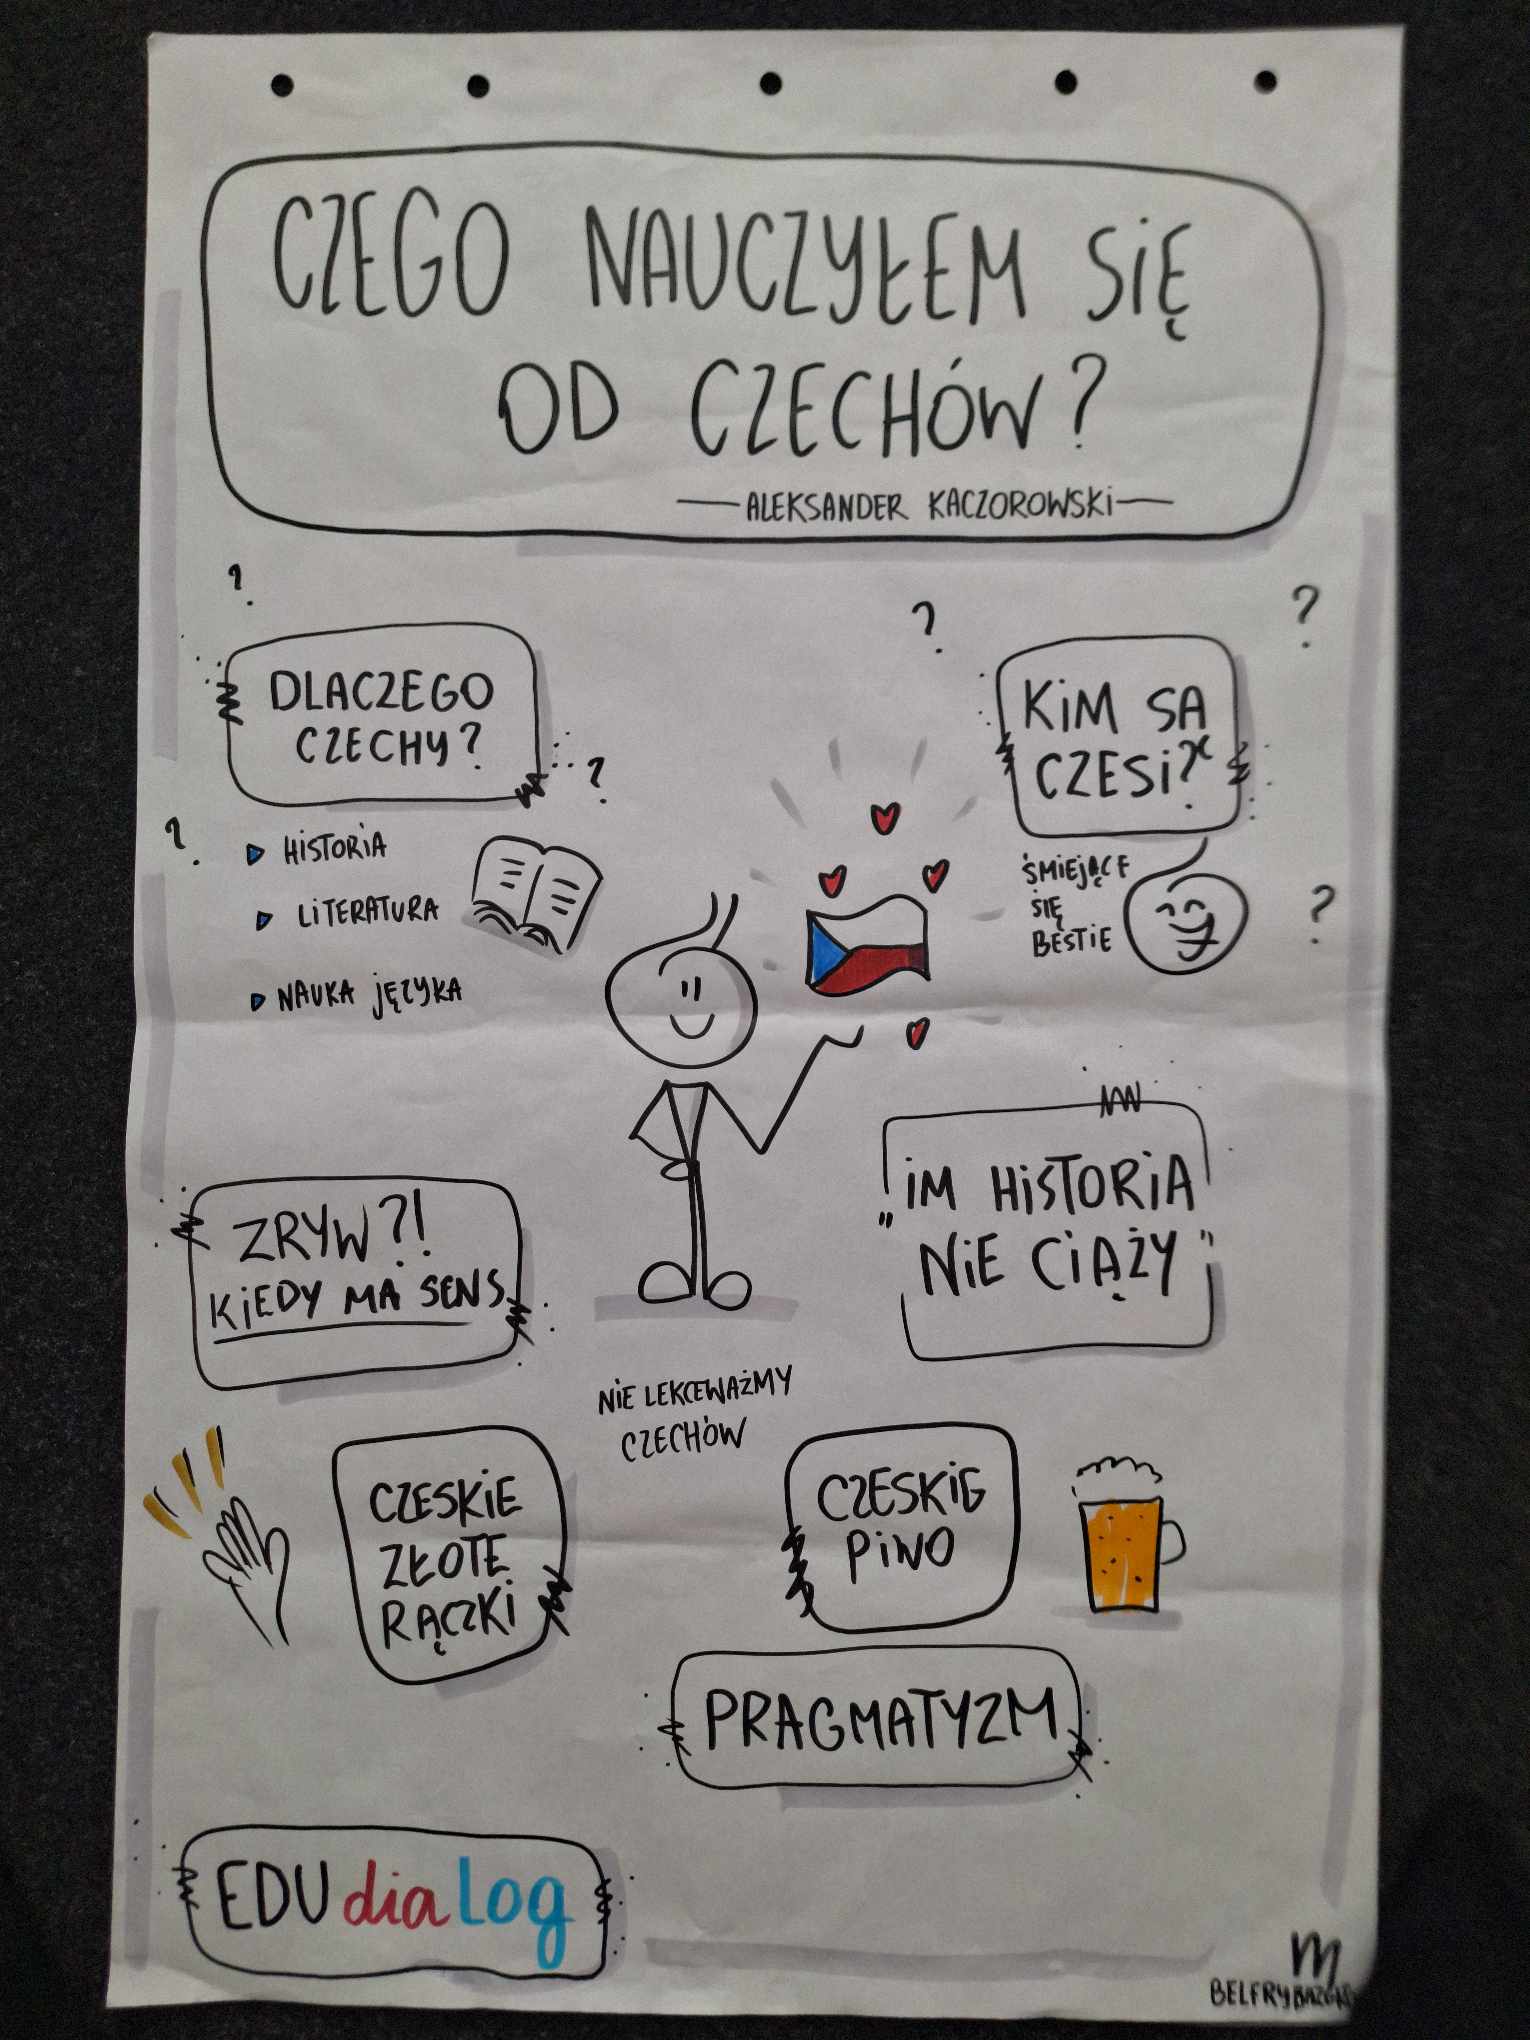 CZEGO NAUCZYŁEM SIĘ
OD CZECHÓW?
ALEKSANDER KACZOROWSKI
DLACZEGO
CZECHY?
HISTORIA
LITERATURA
NAUKA JĘZYKA
KIM SA
CZESI?
ŚMIEJĄCE
SIĘ
BESTIE
ZRYW?!
KIEDY MA SENS
„IM HISTORIA
NIE CIĄŻY"
NIE LEKCEWAŻMY
CZECHÓW
CZESKIE
ZŁOTE
RĄCZKI
CZESKIE
PIWO
PRAGMATYZM
EDUdiaLog